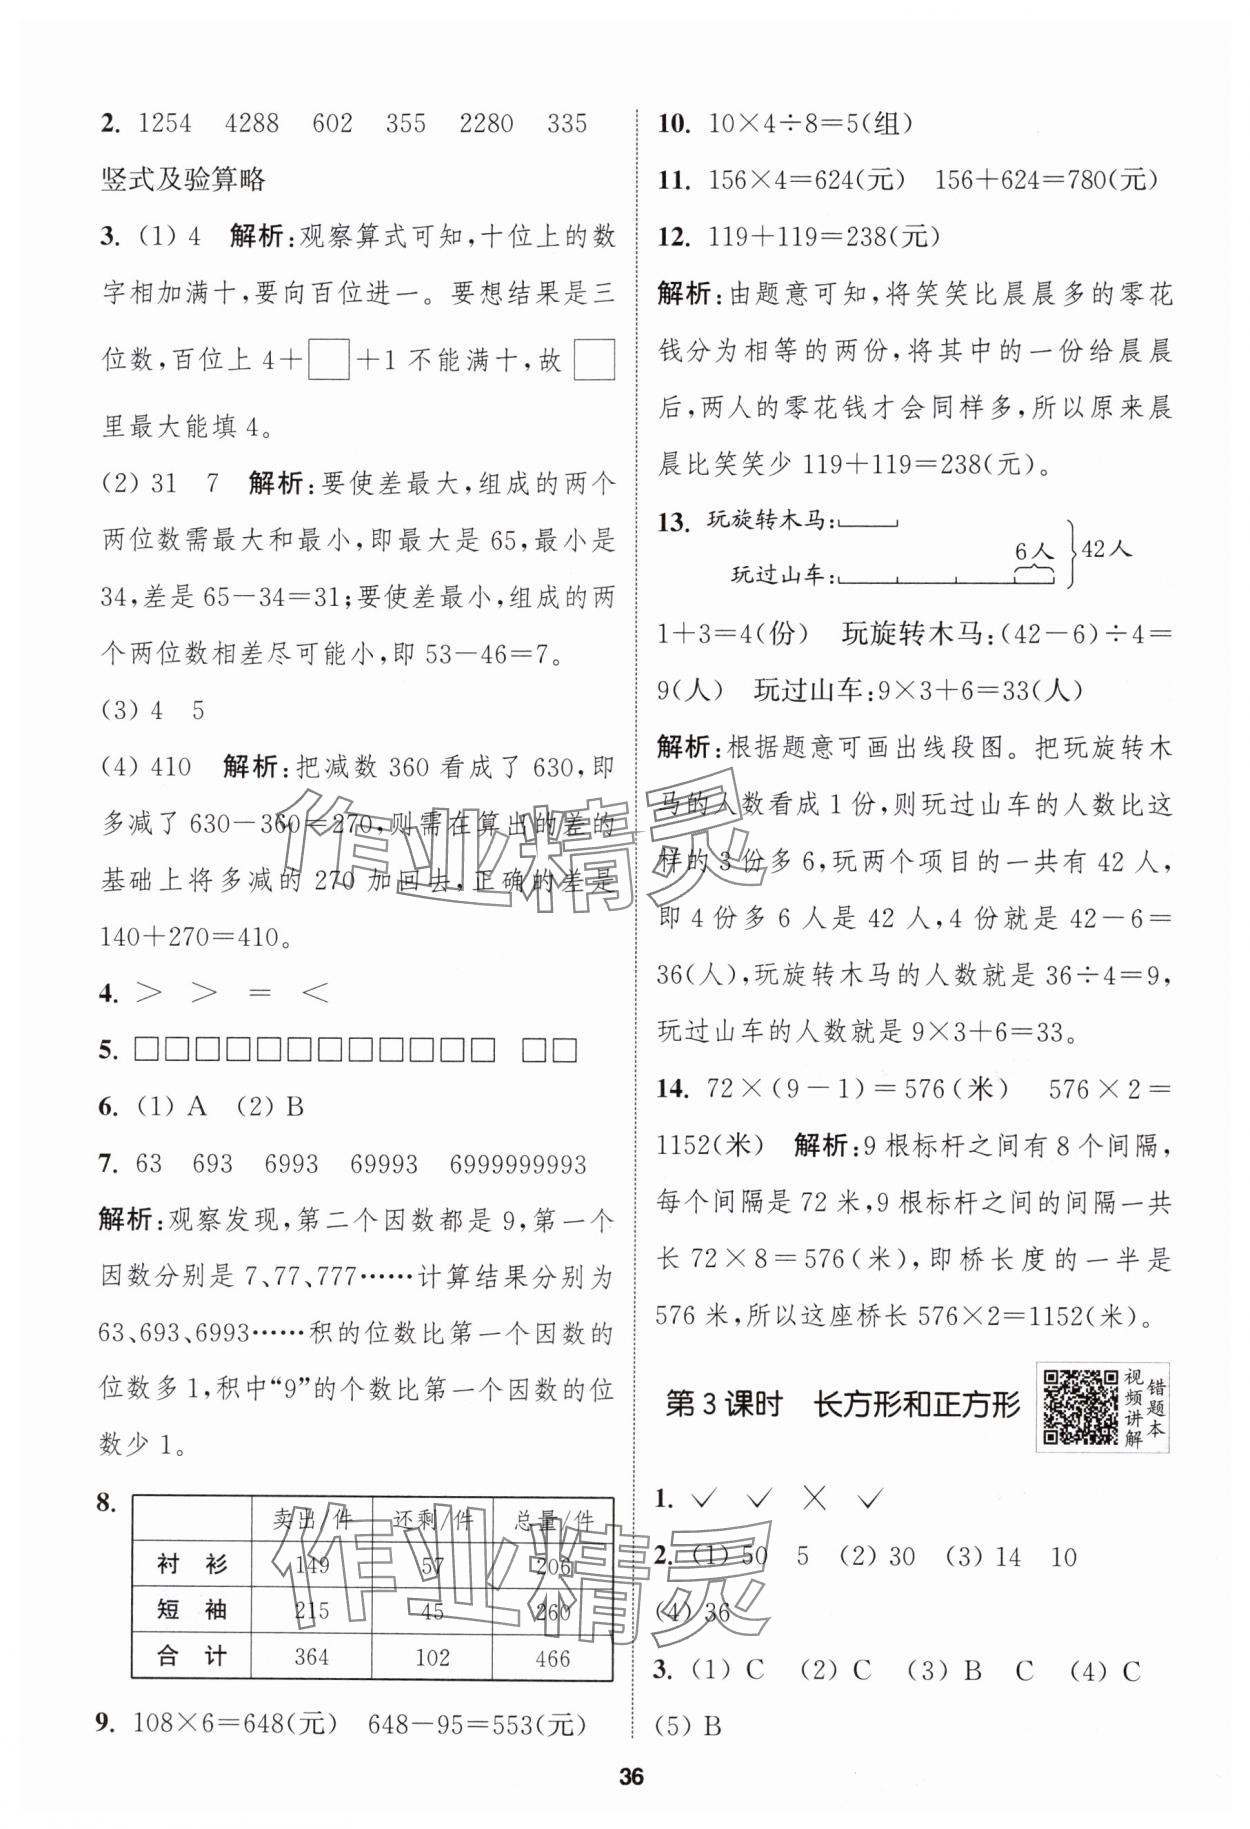 2. 1254 4288 602 355 2280 335
竖式及验算略
3. (1) 4 解析:观察算式可知,十位上的数
字相加满十,要向百位进一。要想结果是三
位数,百位上 4+□+1 不能满十,故□
里最大能填4。
(2) 31 7 解析:要使差最大,组成的两个
两位数需最大和最小,即最大是 65,最小是
34,差是 65-34=31;要使差最小,组成的两
个两位数相差尽可能小,即 53-46=7。
(3) 4 5
(4) 410 解析:把减数 360 看成了 630,即
多减了 630-360=270,则需在算出的差的
基础上将多减的 270 加回去,正确的差是
140+270=410。
4. > > = <
5. □□□□□□□□□□□□ □□
6. (1) A (2) B
7. 63 693 6993 69993 6999999993
解析:观察发现,第二个因数都是 9,第一个
因数分别是 7、77、777……计算结果分别为
63、693、6993……积的位数比第一个因数的
位数多1,积中“9”的个数比第一个因数的位
数少 1。
8.
卖出/件 还剩/件 总量/件
衬衫 149 57 206
短袖 215 45 260
合计 364 102 466
9. 108×6=648(元) 648-95=553(元)
10. 10×4÷8=5(组)
11. 156×4=624(元) 156+624=780(元)
12. 119+119=238(元)
解析:由题意可知,将笑笑比晨晨多的零花
钱分为相等的两份,将其中的一份给晨晨
后,两人的零花钱才会同样多,所以原来晨
晨比笑笑少 119+119=238(元)。
13. 玩旋转木马:
6人
42人
玩过山车:
1+3=4(份) 玩旋转木马:(42-6)÷4=
9(人) 玩过山车:9×3+6=33(人)
解析:根据题意可画出线段图。把玩旋转木
马的人数看成 1 份,则玩过山车的人数比这
样的 3 份多 6,玩两个项目的一共有 42 人,
即 4 份多 6 人是 42 人,4 份就是 42-6=
36(人),玩旋转木马的人数就是 36÷4=9,
玩过山车的人数就是 9×3+6=33。
14. 72×(9-1)=576(米) 576×2=
1152(米) 解析:9 根标杆之间有 8 个间隔,
每个间隔是 72 米,9 根标杆之间的间隔一共
长 72×8=576(米),即桥长度的一半是
576 米,所以这座桥长 576×2=1152(米)。
第 3 课时 长方形和正方形
视频讲解
错题本
1. ✓ ✓ ✗ ✓
2. (1) 50 5 (2) 30 (3) 14 10
(4) 36
3. (1) C (2) C (3) B C (4) C
(5) B
36
作业精灵
作业精灵